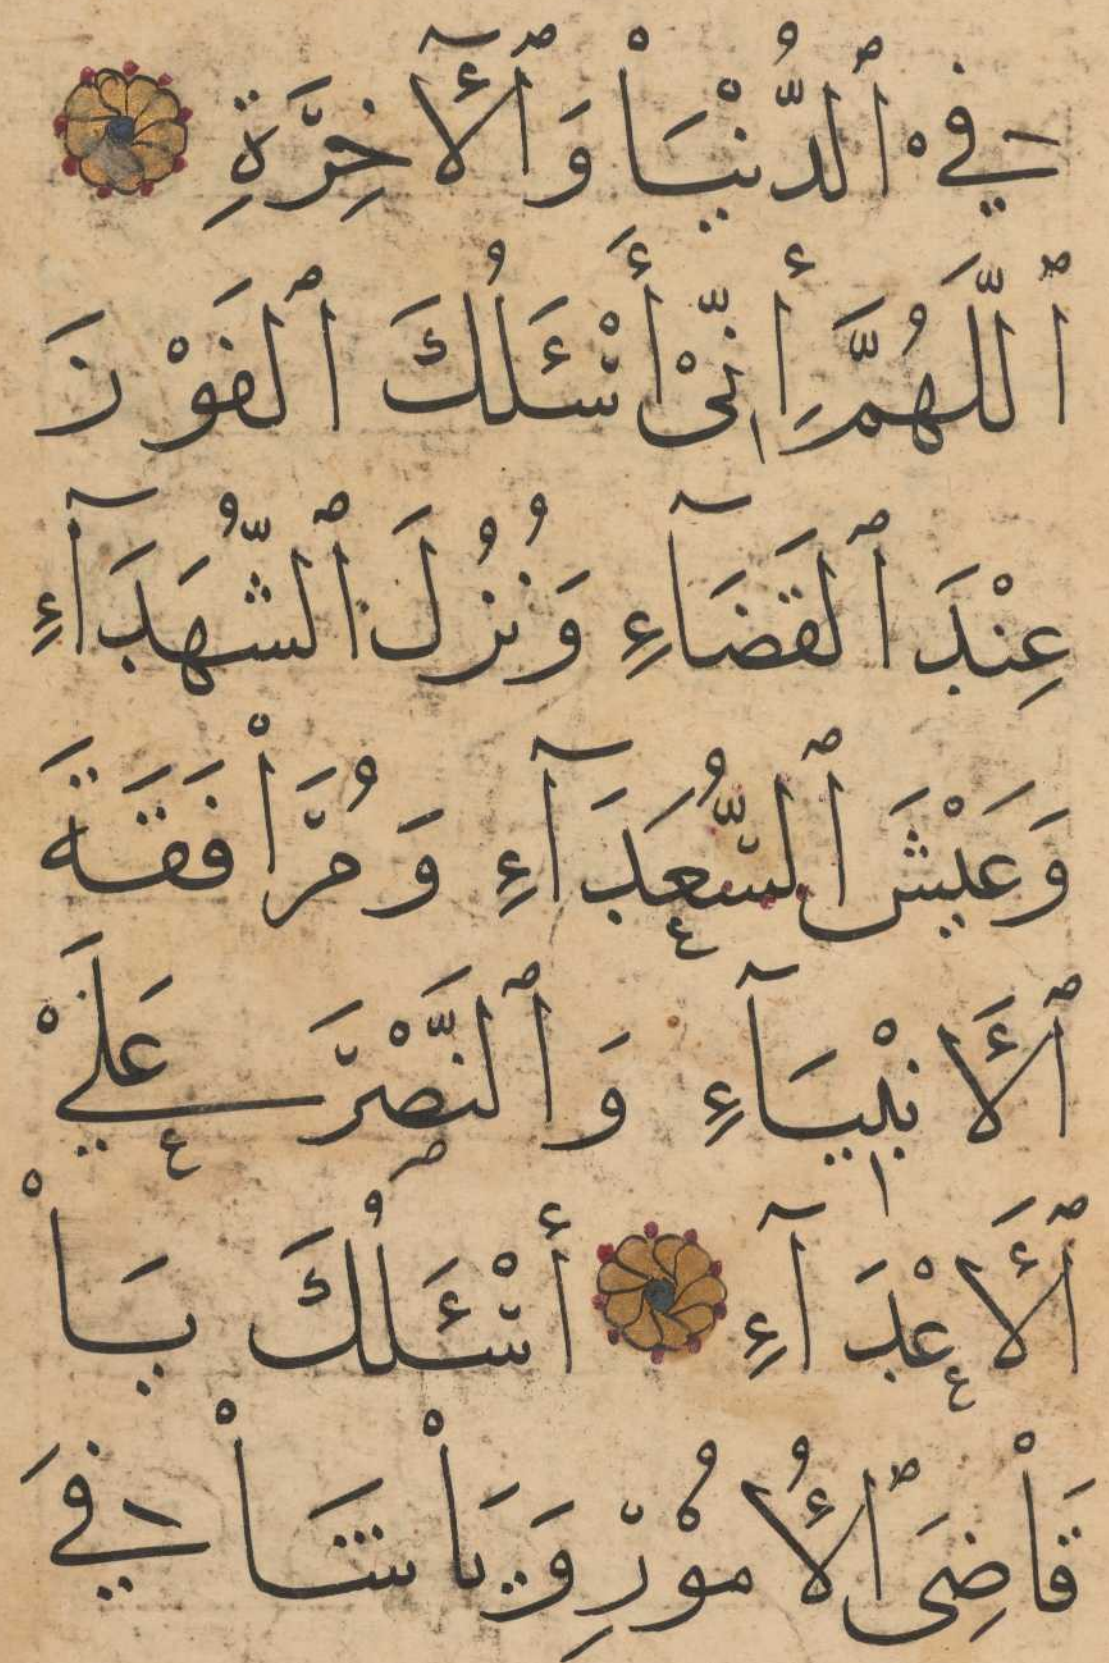 فِيْ ٱلدُّنْيَاْ وَٱلْأٓخِرَةِ
ٱللَّهُمَّ إِنِّيْ أَسْئَلُكَ ٱلفَوْزَ
عِنْدَ ٱلقَضَآءِ وَنُزُلَ ٱلشُّهَدَآءِ
وَعَيْشَ ٱلسُّعَدَآءِ وَمُرَاْفَقَةَ
ٱلأَنْبِيَآءِ وَٱلنَّصْرَ عَلَيْ
ٱلأَعْدَآءِ أَسْئَلُكَ يَاْ
قَاْضِيَ ٱلأُمُوْرِ وَيَاْ شَاْفِيَ